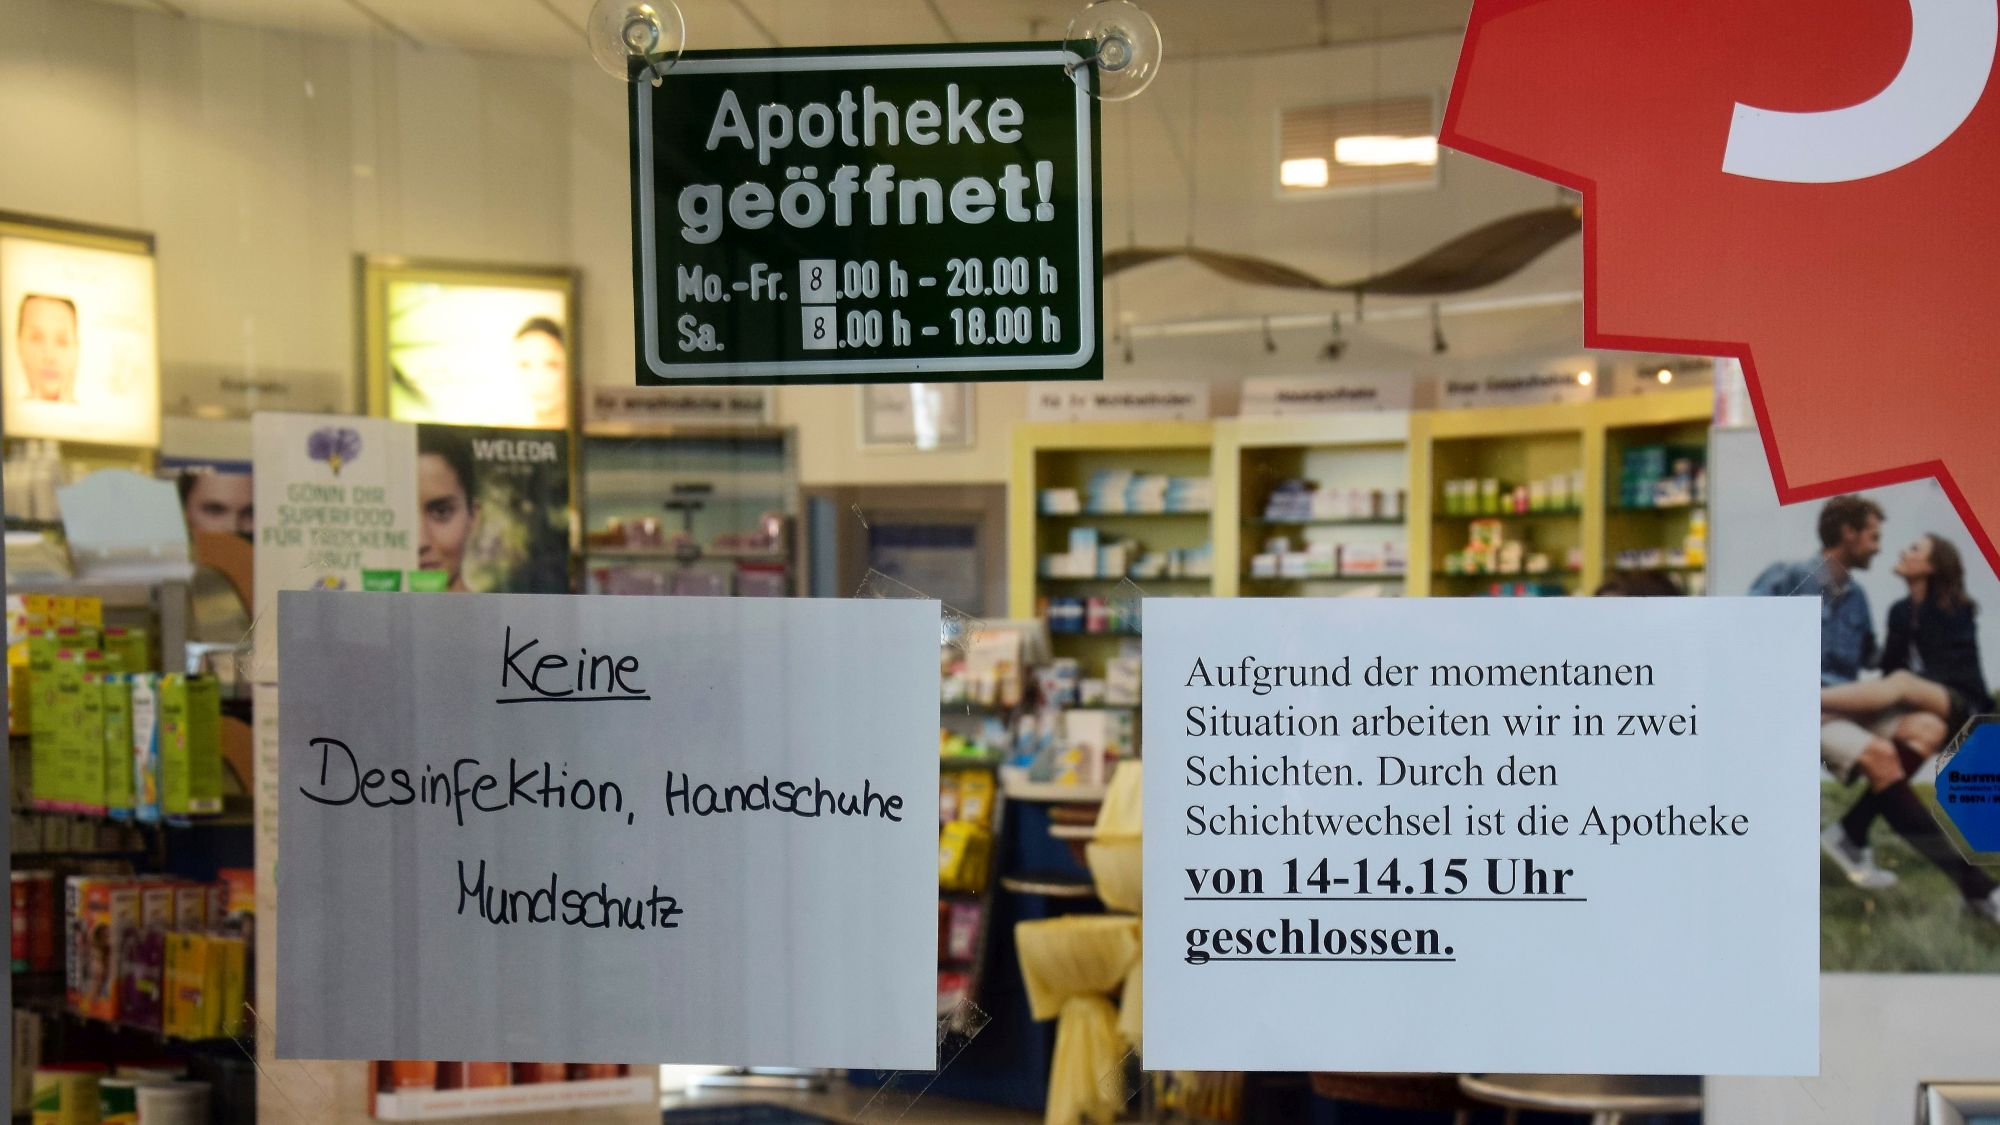 Apotheke
geöffnet!
Mo.-Fr. 8.00 h - 20.00 h
Sa. 8.00 h - 18.00 h
WELEDA
GÖNN DIR
SUPERFOOD
FÜR TROCKENE
HAUT
Keine
Desinfektion, Handschuhe
Mundschutz
Aufgrund der momentanen
Situation arbeiten wir in zwei
Schichten. Durch den
Schichtwechsel ist die Apotheke
von 14-14.15 Uhr
geschlossen.